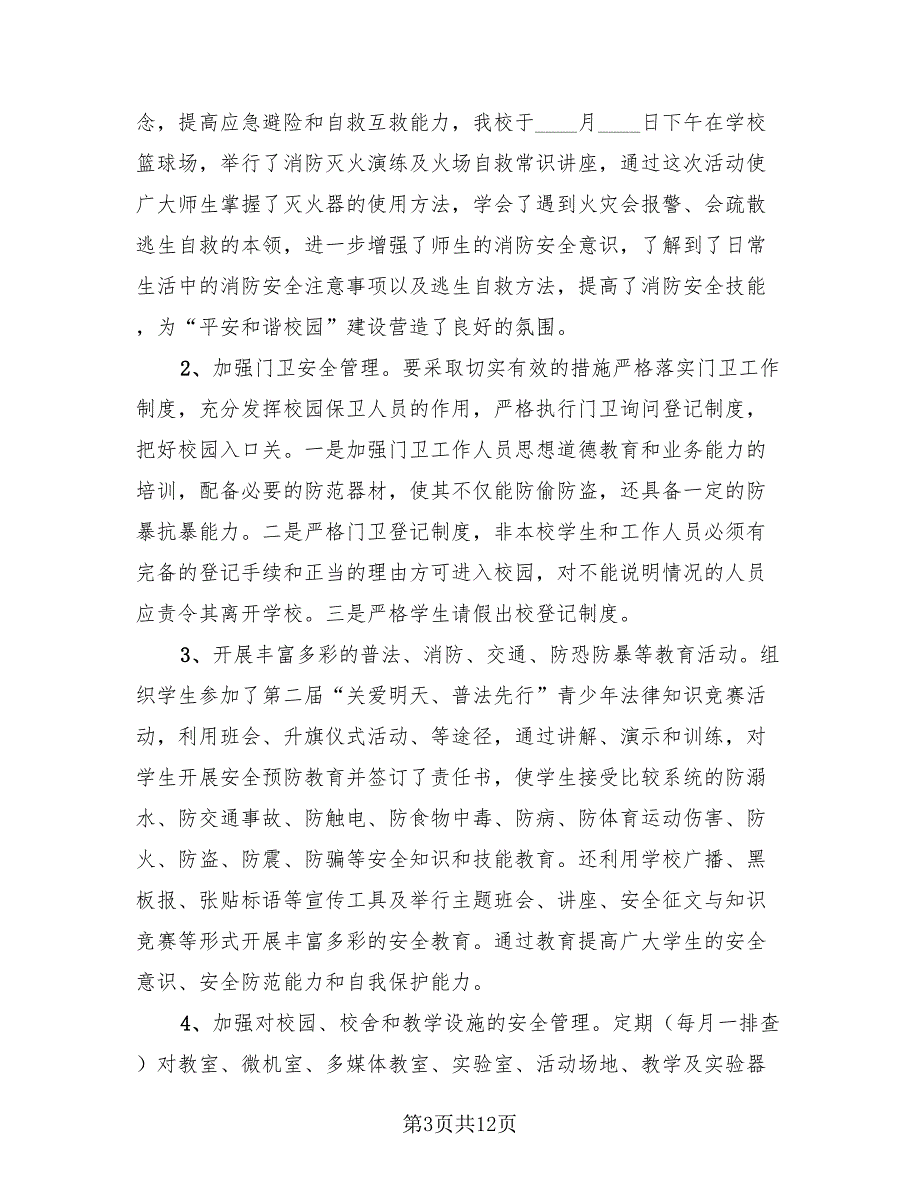 念，提高应急避险和自救互救能力，我校于____月____日下午在学校
篮球场，举行了消防灭火演练及火场自救常识讲座，通过这次活动使
广大师生掌握了灭火器的使用方法，学会了遇到火灾会报警、会疏散
逃生自救的本领，进一步增强了师生的消防安全意识，了解到了日常
生活中的消防安全注意事项以及逃生自救方法，提高了消防安全技能
，为“平安和谐校园”建设营造了良好的氛围。
2、加强门卫安全管理。要采取切实有效的措施严格落实门卫工作
制度，充分发挥校园保卫人员的作用，严格执行门卫询问登记制度，
把好校园入口关。一是加强门卫工作人员思想道德教育和业务能力的
培训，配备必要的防范器材，使其不仅能防偷防盗，还具备一定的防
暴抗暴能力。二是严格门卫登记制度，非本校学生和工作人员必须有
完备的登记手续和正当的理由方可进入校园，对不能说明情况的人员
应责令其离开学校。三是严格学生请假出校登记制度。
3、开展丰富多彩的普法、消防、交通、防恐防暴等教育活动。组
织学生参加了第二届“关爱明天、普法先行”青少年法律知识竞赛活
动，利用班会、升旗仪式活动、等途径，通过讲解、演示和训练，对
学生开展安全预防教育并签订了责任书，使学生接受比较系统的防溺
水、防交通事故、防触电、防食物中毒、防病、防体育运动伤害、防
火、防盗、防震、防骗等安全知识和技能教育。还利用学校广播、黑
板报、张贴标语等宣传工具及举行主题班会、讲座、安全征文与知识
竞赛等形式开展丰富多彩的安全教育。通过教育提高广大学生的安全
意识、安全防范能力和自我保护能力。
4、加强对校园、校舍和教学设施的安全管理。定期（每月一排查
）对教室、微机室、多媒体教室、实验室、活动场地、教学及实验器
第3页共12页